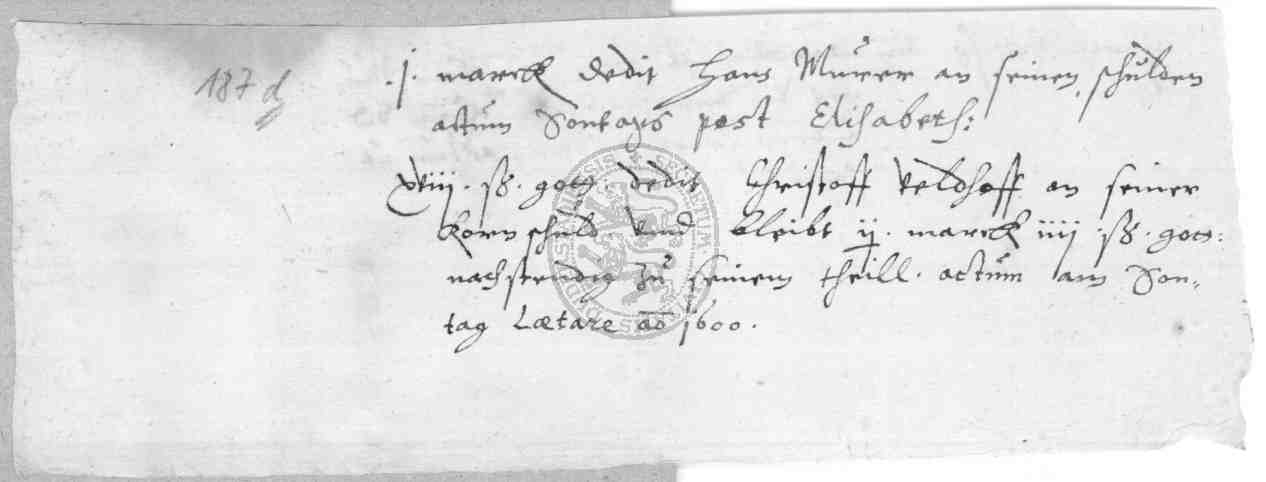 187 d
.j. marck dedit Hans Murer an seinen schulden
actum Sontags post Elisabeth:
xviij. ß. gorl. dedit Christoff Veldhoff an seiner
korn schuld vnnd bleibt ij. marck iiij. ß. gor:
nachstendig zu seinem theill. actum am Son-
tag Lætare ao 1600.